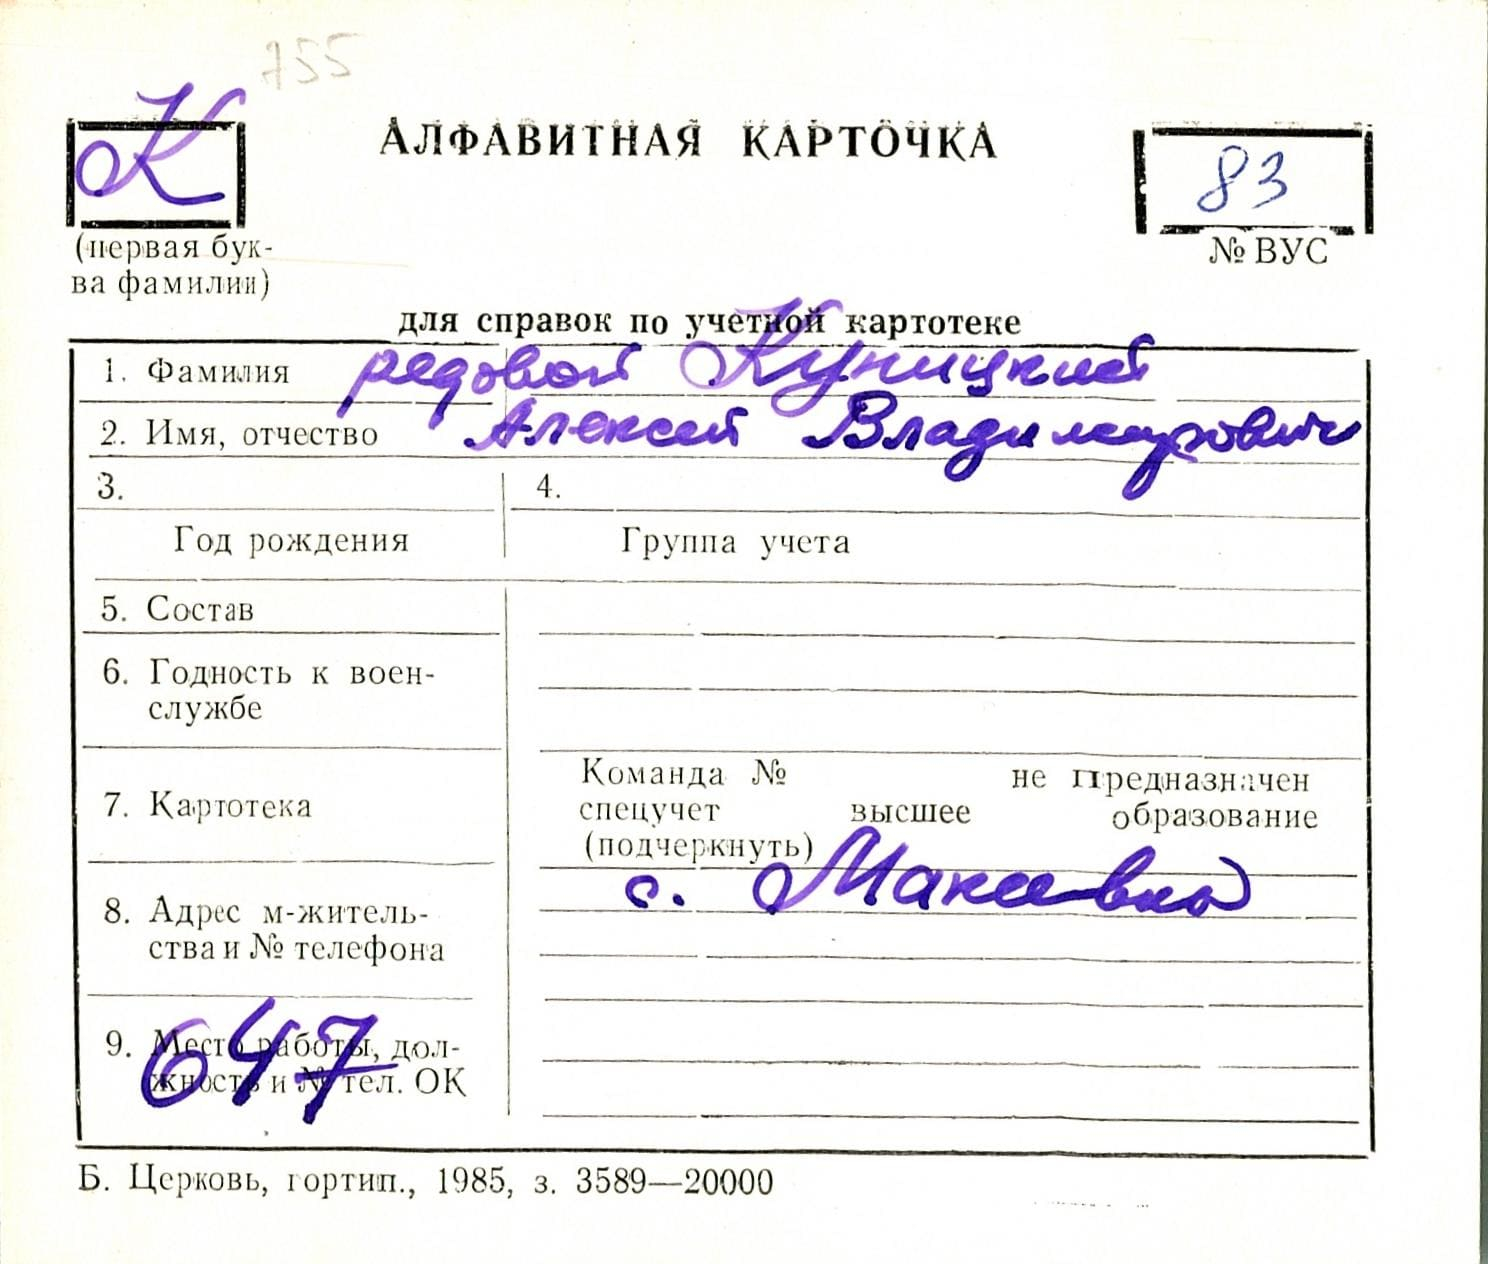 755
К
АЛФАВИТНАЯ КАРТОЧКА
83
(первая бук-
ва фамилии)
№ ВУС
для справок по учетной картотеке
1. Фамилия рядовой Куницкий
2. Имя, отчество Алексей Владимирович
3. 4.
Год рождения Группа учета
5. Состав
6. Годность к воен-
службе
7. Картотека
Команда № не предназначен
спецучет высшее образование
(подчеркнуть)
8. Адрес м-житель-
ства и № телефона
с. Макеевка
9. Место работы, дол-
жность и № тел. ОК
647
Б. Церковь, гортип., 1985, з. 3589—20000